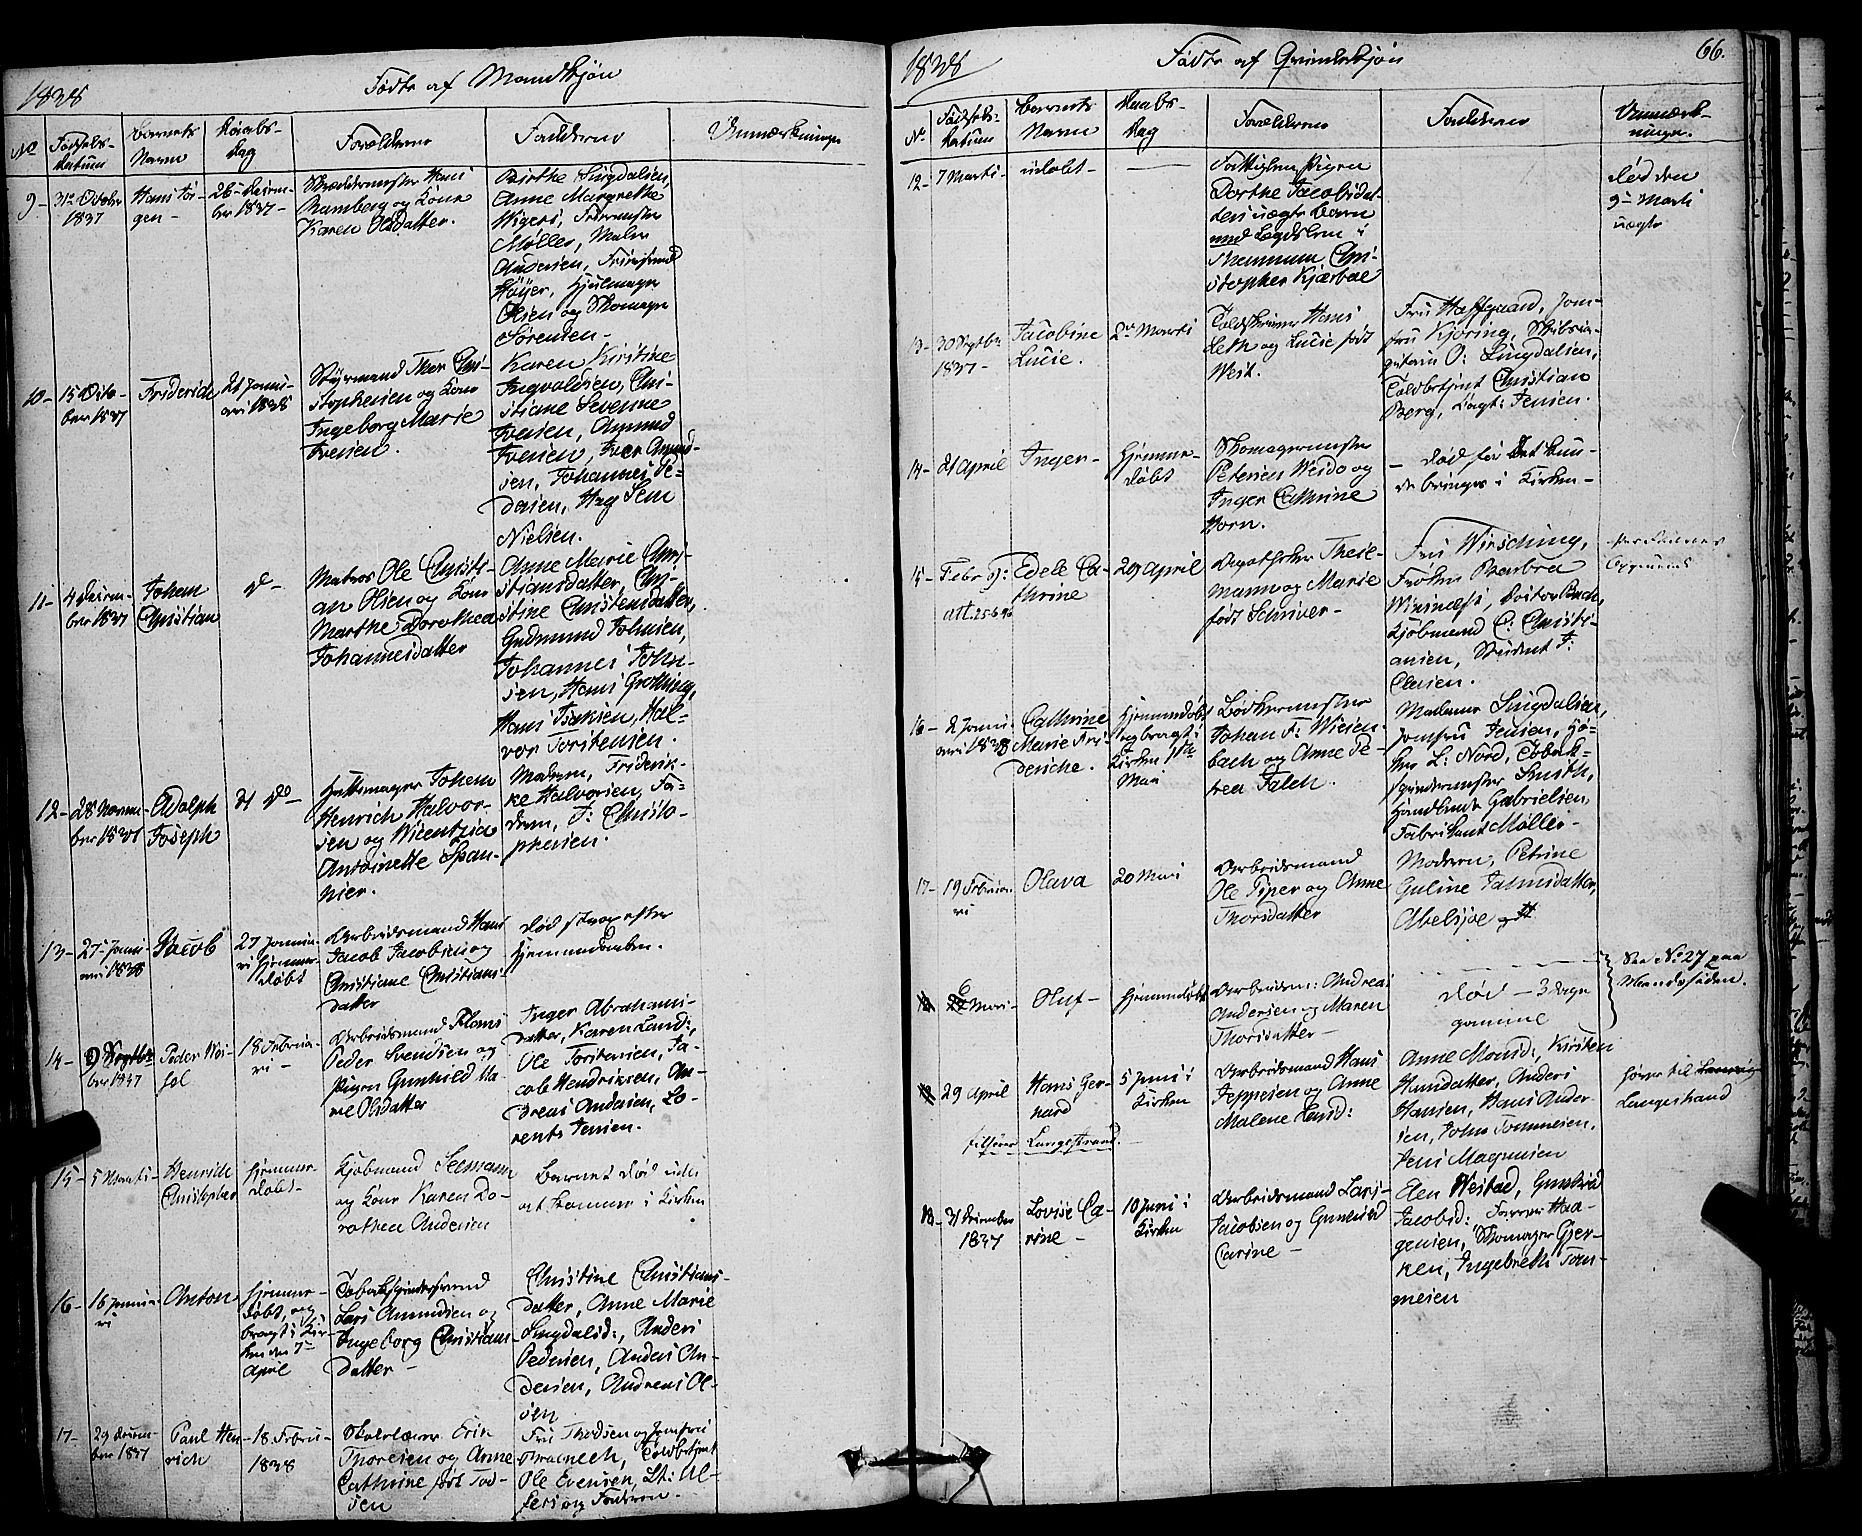 1838
Fødte af Mandkjøn
No
Fødsels-
datum
Barnets
Navn
Daabs-
dag
Forældrene
Fadderne
Anmærkninger
9-
31te Octobr
1837
Hans Jør-
gen -
26 - Decem-
ber 1837 -
Skræddermester Hans
Ramberg og Kone
Karen Olsdatter.
Birthe Lingdalsen,
Anne Margrethe
Møller, Maler
Andersen,
Høyer, Hjulmager
Olsen og Skomager
Sørensen -
10-
15 Octo-
ber 1837
Friderich
21 Janu-
ari 1838
Styrmand Thor Chri-
stophersen og Kone
Ingeborg Marie
Iversen.
Karen Kirstine
Ingvaldsen, Chri-
stiane Severine
Iversen, Amund
Iversen, Iver Amund-
sen, Johannes Pe-
dersen,
Nielsen.
11-
4 Decem-
ber 1837
Johan
Christian
do -
Matros Ole Christi-
an Olsen og Kone
Marthe Dorothea
Johannesdatter
Anne Marie Chri-
stiansdatter, Chri-
stine Christensdatter,
Gudmund Johnsen,
Johannes John-
sen, Hans Grotting,
Hans Isaksen, Hal-
vor Torstensen.
12-
28 Novem-
ber 1837
Adolph
Joseph
21 do -
Hattemager Johan
Henrich Halvor-
sen og Vicentzia
Antoinette Span-
nier.
Madam, Friderik-
ke Halvorsen, Fa-
deren, J: Christo-
phersen.
13-
27 Janu-
ari 1838
Jacob
27 Janua-
ri hjemme-
døbt
Arbeidsmand Hans
Jacob Jacobsen og
Christiane Christians-
datter
død strax efter
hjemmedaaben.
14-
9 Septbr
ber 1837
Peder
18 Februa-
ri -
Arbeidsmand
Peder Svendsen og
Pigen Gunhild Ma-
rie Olsdatter
Inger Abrahams-
datter, Karen Lund:,
Ole Torstensen, Ja-
cob Hendriksen, An-
dreas Andersen, Lo-
rents Jensen.
15-
5 Marti -
Henrich
Christopher
hjemme-
døbt -
Kjøbmand Selmann
og Kone Karen Do-
rothea Andersen
Barnet død uden
at komme i Kirken
16-
16 Janua-
ri
Anton
hjemme-
døbt, og
bragt i Kir-
ken den 7de
April
Tobakspindersvend
Lars Amundsen og
Ingeborg Christians-
datter -
Christine Christians-
datter, Anne Marie
Lingdalsd:, Anders
Pedersen, Anders An-
dersen, Andreas Ol-
sen
17-
29 Decem-
ber 1837
Paul Hen-
rich
18 Febru-
1838
Skolelærer Erik
Thoresen og Anne
Cathrine født Tod-
sen
Fru Thodsen og Jomfru
Toldbetjent
Ole Evensen, Lt: Al-
fers og Faderen.
1838
Fødte af Qvindekjøn
66.
No
Fødsels-
datum
Barnets
Navn
Daabs-
dag
Forældrene
Fadderne
Anmærk-
ninger.
12-
7 Marti -
udøbt -
Fattiglem Pigen
Dorthe Jacobsdat-
ters uægte Barn
med Lægdslem i
Christopher Kjærbae
død den
9de Marti
uægte
13-
30 Septbr
1837 -
Jacobine
Lucie.
2de Marti
Toldskriver Hans
Leth og Lucie født
West.
Fru Haffgaard, Jom-
fru Kjøring, Skibsca-
pitain O: Lingdalsen,
Toldbetjent Christian
Borg, Jensen.
14-
21 April
Inger -
hjemme-
døbt
Skomagermester
Petersen Weido og
Inger Cathrine
Horn.
- død før det kun-
de bringes i Kirken -
15-
Febr
Edele Ca-
thrine
29 April
Apotheker Theil-
mann og Marie
født Schriver -
Fru Wirsching,
Frøken Barbra
Doctor Buch,
Kjøbmand C: Christi-
ansen, Student J:
Clausen.
16-
2 Janu-
ari 1838
Cathrine
Marie Fri-
deriche.
hjemmedøbt
og bragt i
Kirken
Mai
Bødkermester
Johan F: Wiesen-
bach og Anne Pe-
trea Falch.
Madame Lingdalsen,
Jomfru Jensen,
L: Nord, Tobak-
spindermester Smith,
Handlende Gabrielsen,
Fabrikant Møller -
17-
19 Februa-
ri
Olava
20 Mai
Arbeidsmand
Ole Piper og Anne
Thorsdatter
Moderen, Petrine
Guline Jahnsdatter,
Abelsjoe
6
Mai -
Oluf -
hjemmedøbt
Arbeidsm: Andreas
Andersen og Maren
Thorsdatter -
død - 3 Dage
gammel
See No 27 paa
Mandssiden.
29 April
Hans Ger-
hard
5 Juni i
Kirken
Arbeidsmand Hans
Jeppesen og Anne
Malene Larsd:
Anne Monsd:, Kirsten
Hansdatter, Anders
Hansen, Hans Ander-
sen, John Tommesen,
Jens Magnusen
hører til
Langestrand
tilhører Langestrand. -
18-
31 December
1837
Lovise Ca-
rine -
10 Juni i
Kirken
Arbeidsmand Lars
Jacobsen og Gunhild
Carine -
Elen Westad, Gunhild
Jacobsd: Haa-
gensen, Skomager Gjer-
ken, Ingebreth Tom-
mesen